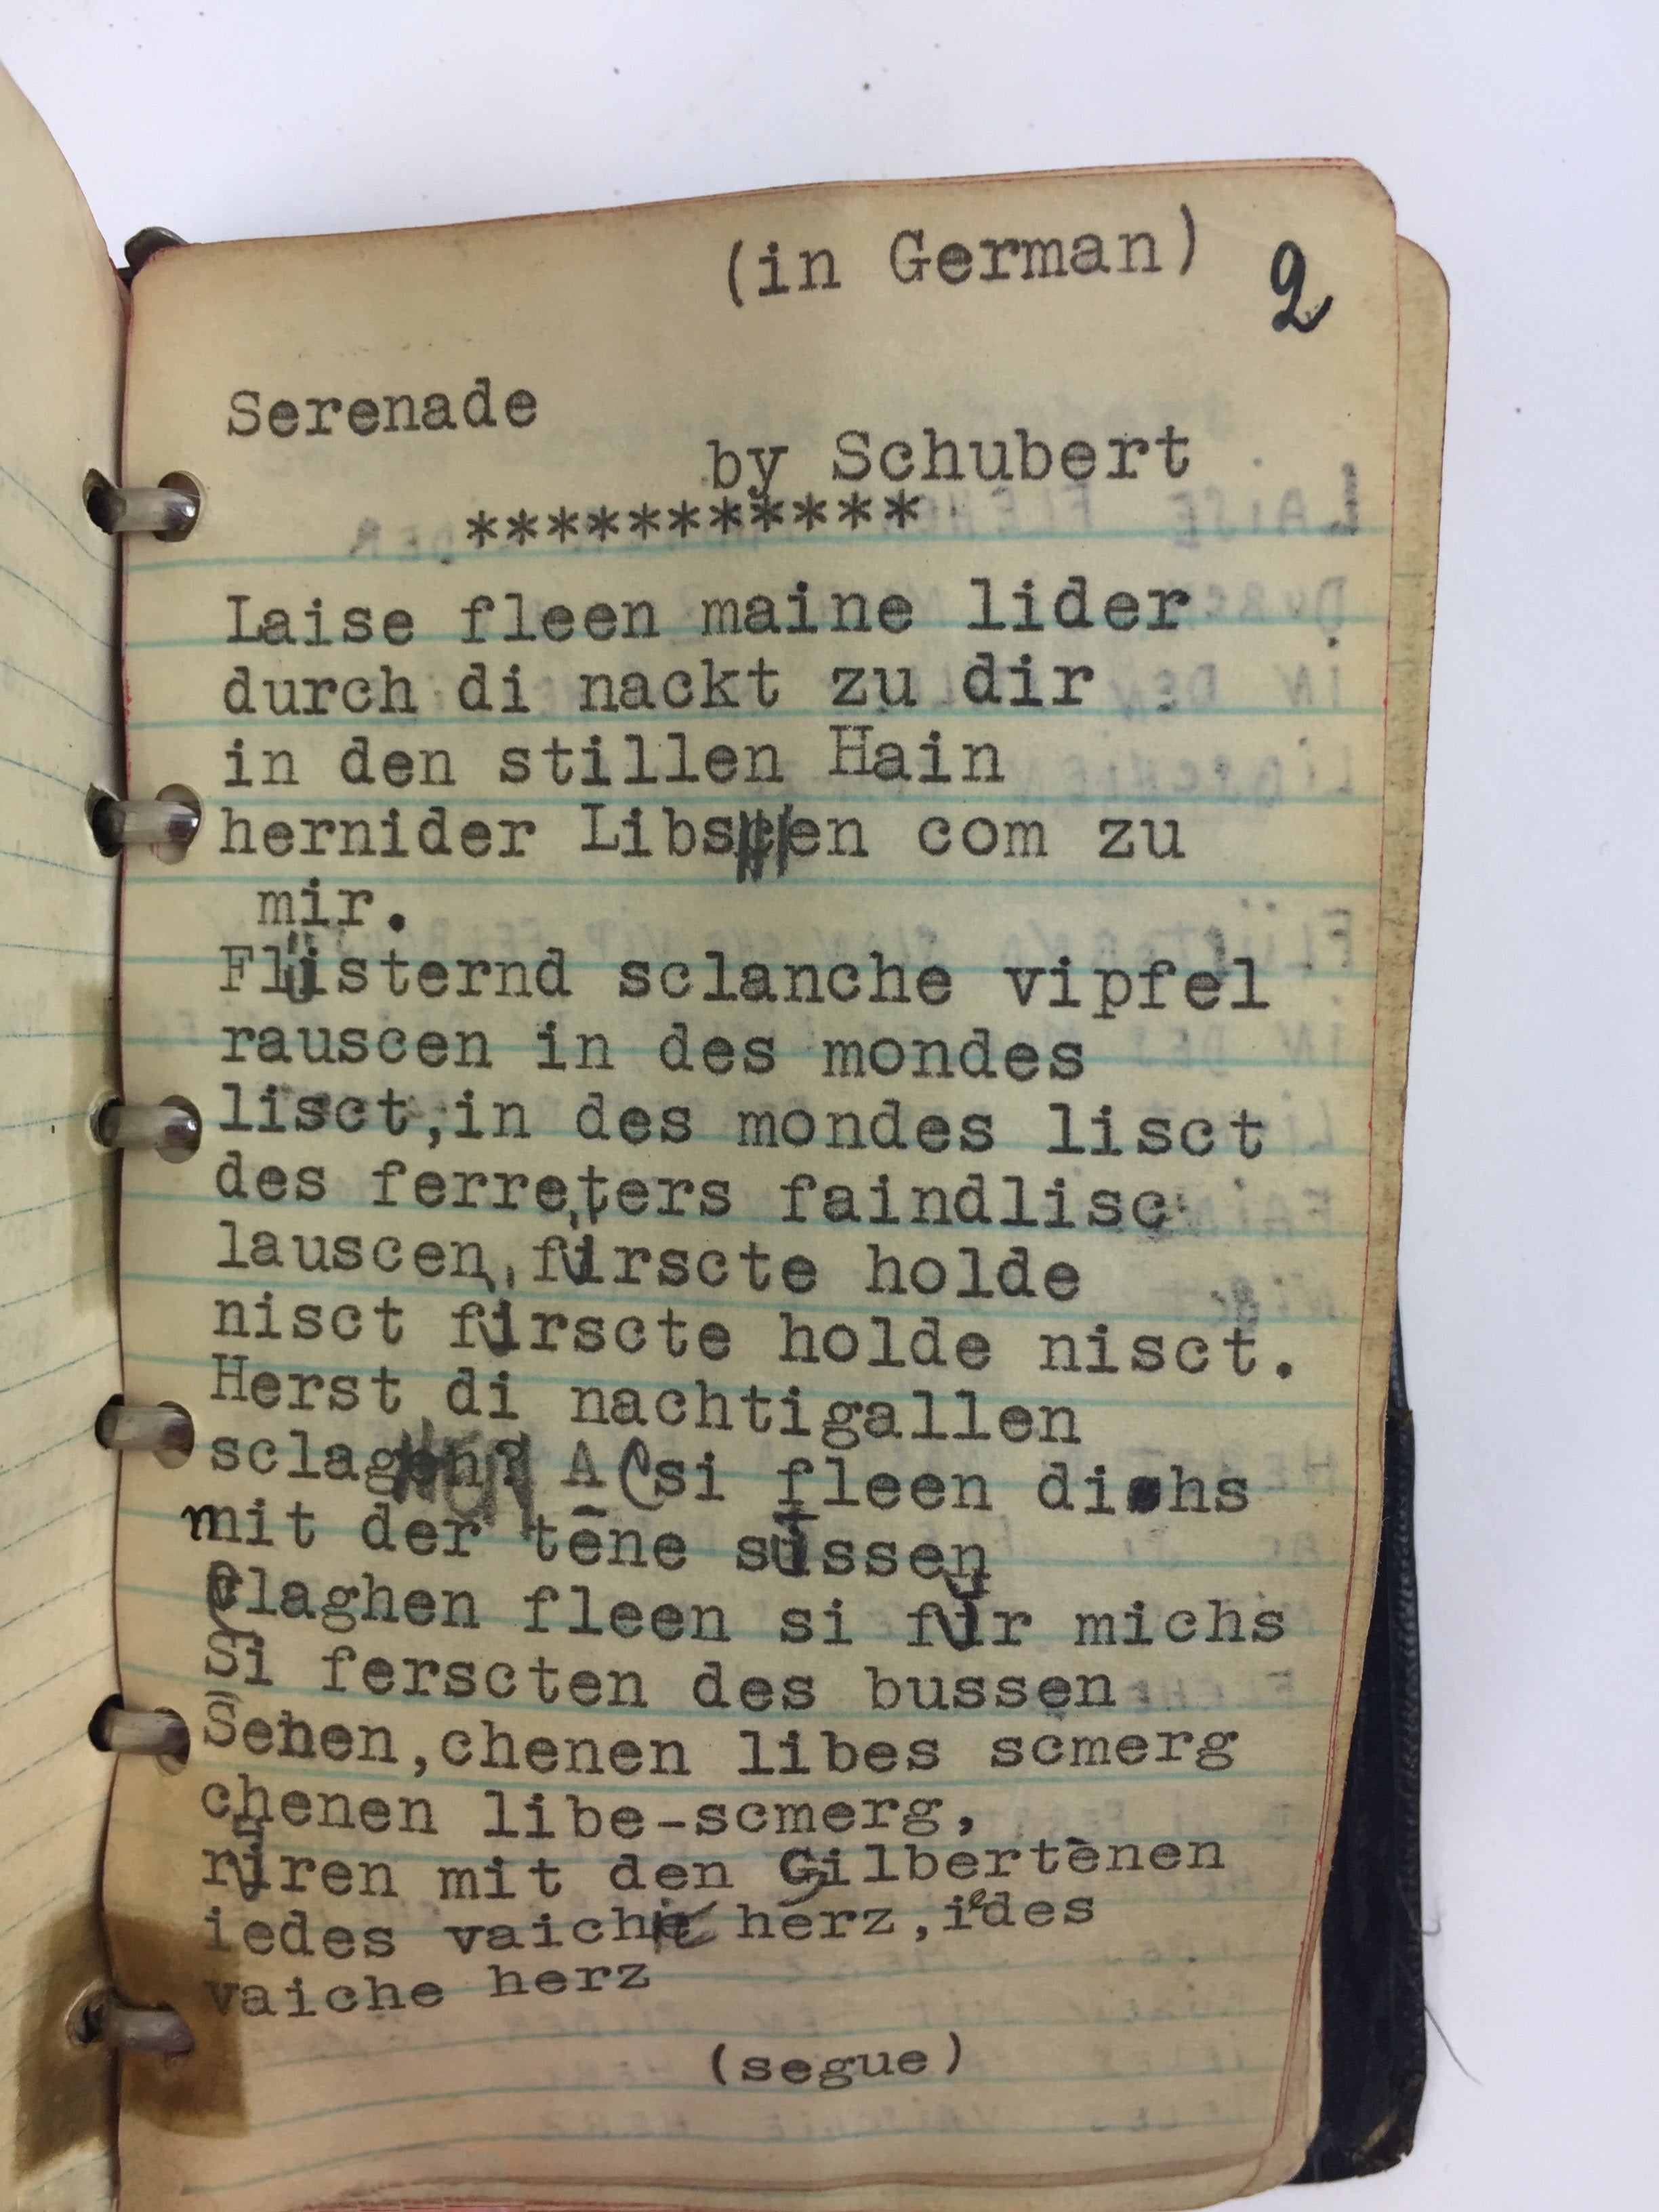 (in German) 2
Serenade
by Schubert
***********
Laise fleen maine lider
durch di nackt zu dir
in den stillen Hain
hernider Libsen com zu
mir.
Flüsternd sclanche vipfel
rauscen in des mondes
lisct,in des mondes lisct
des ferreters faindlisc
lauscen, fürscte holde
nisct fürscte holde nisct.
Herst di nachtigallen
sclagen? A si fleen dichs
mit der tene süssen
Claghen fleen si für michs
Si ferscten des bussen
Sehen,chenen libes scmerg
chenen libe-scmerg,
rüren mit den Gilbertenen
iedes vaiche herz,iedes
vaiche herz
(segue)